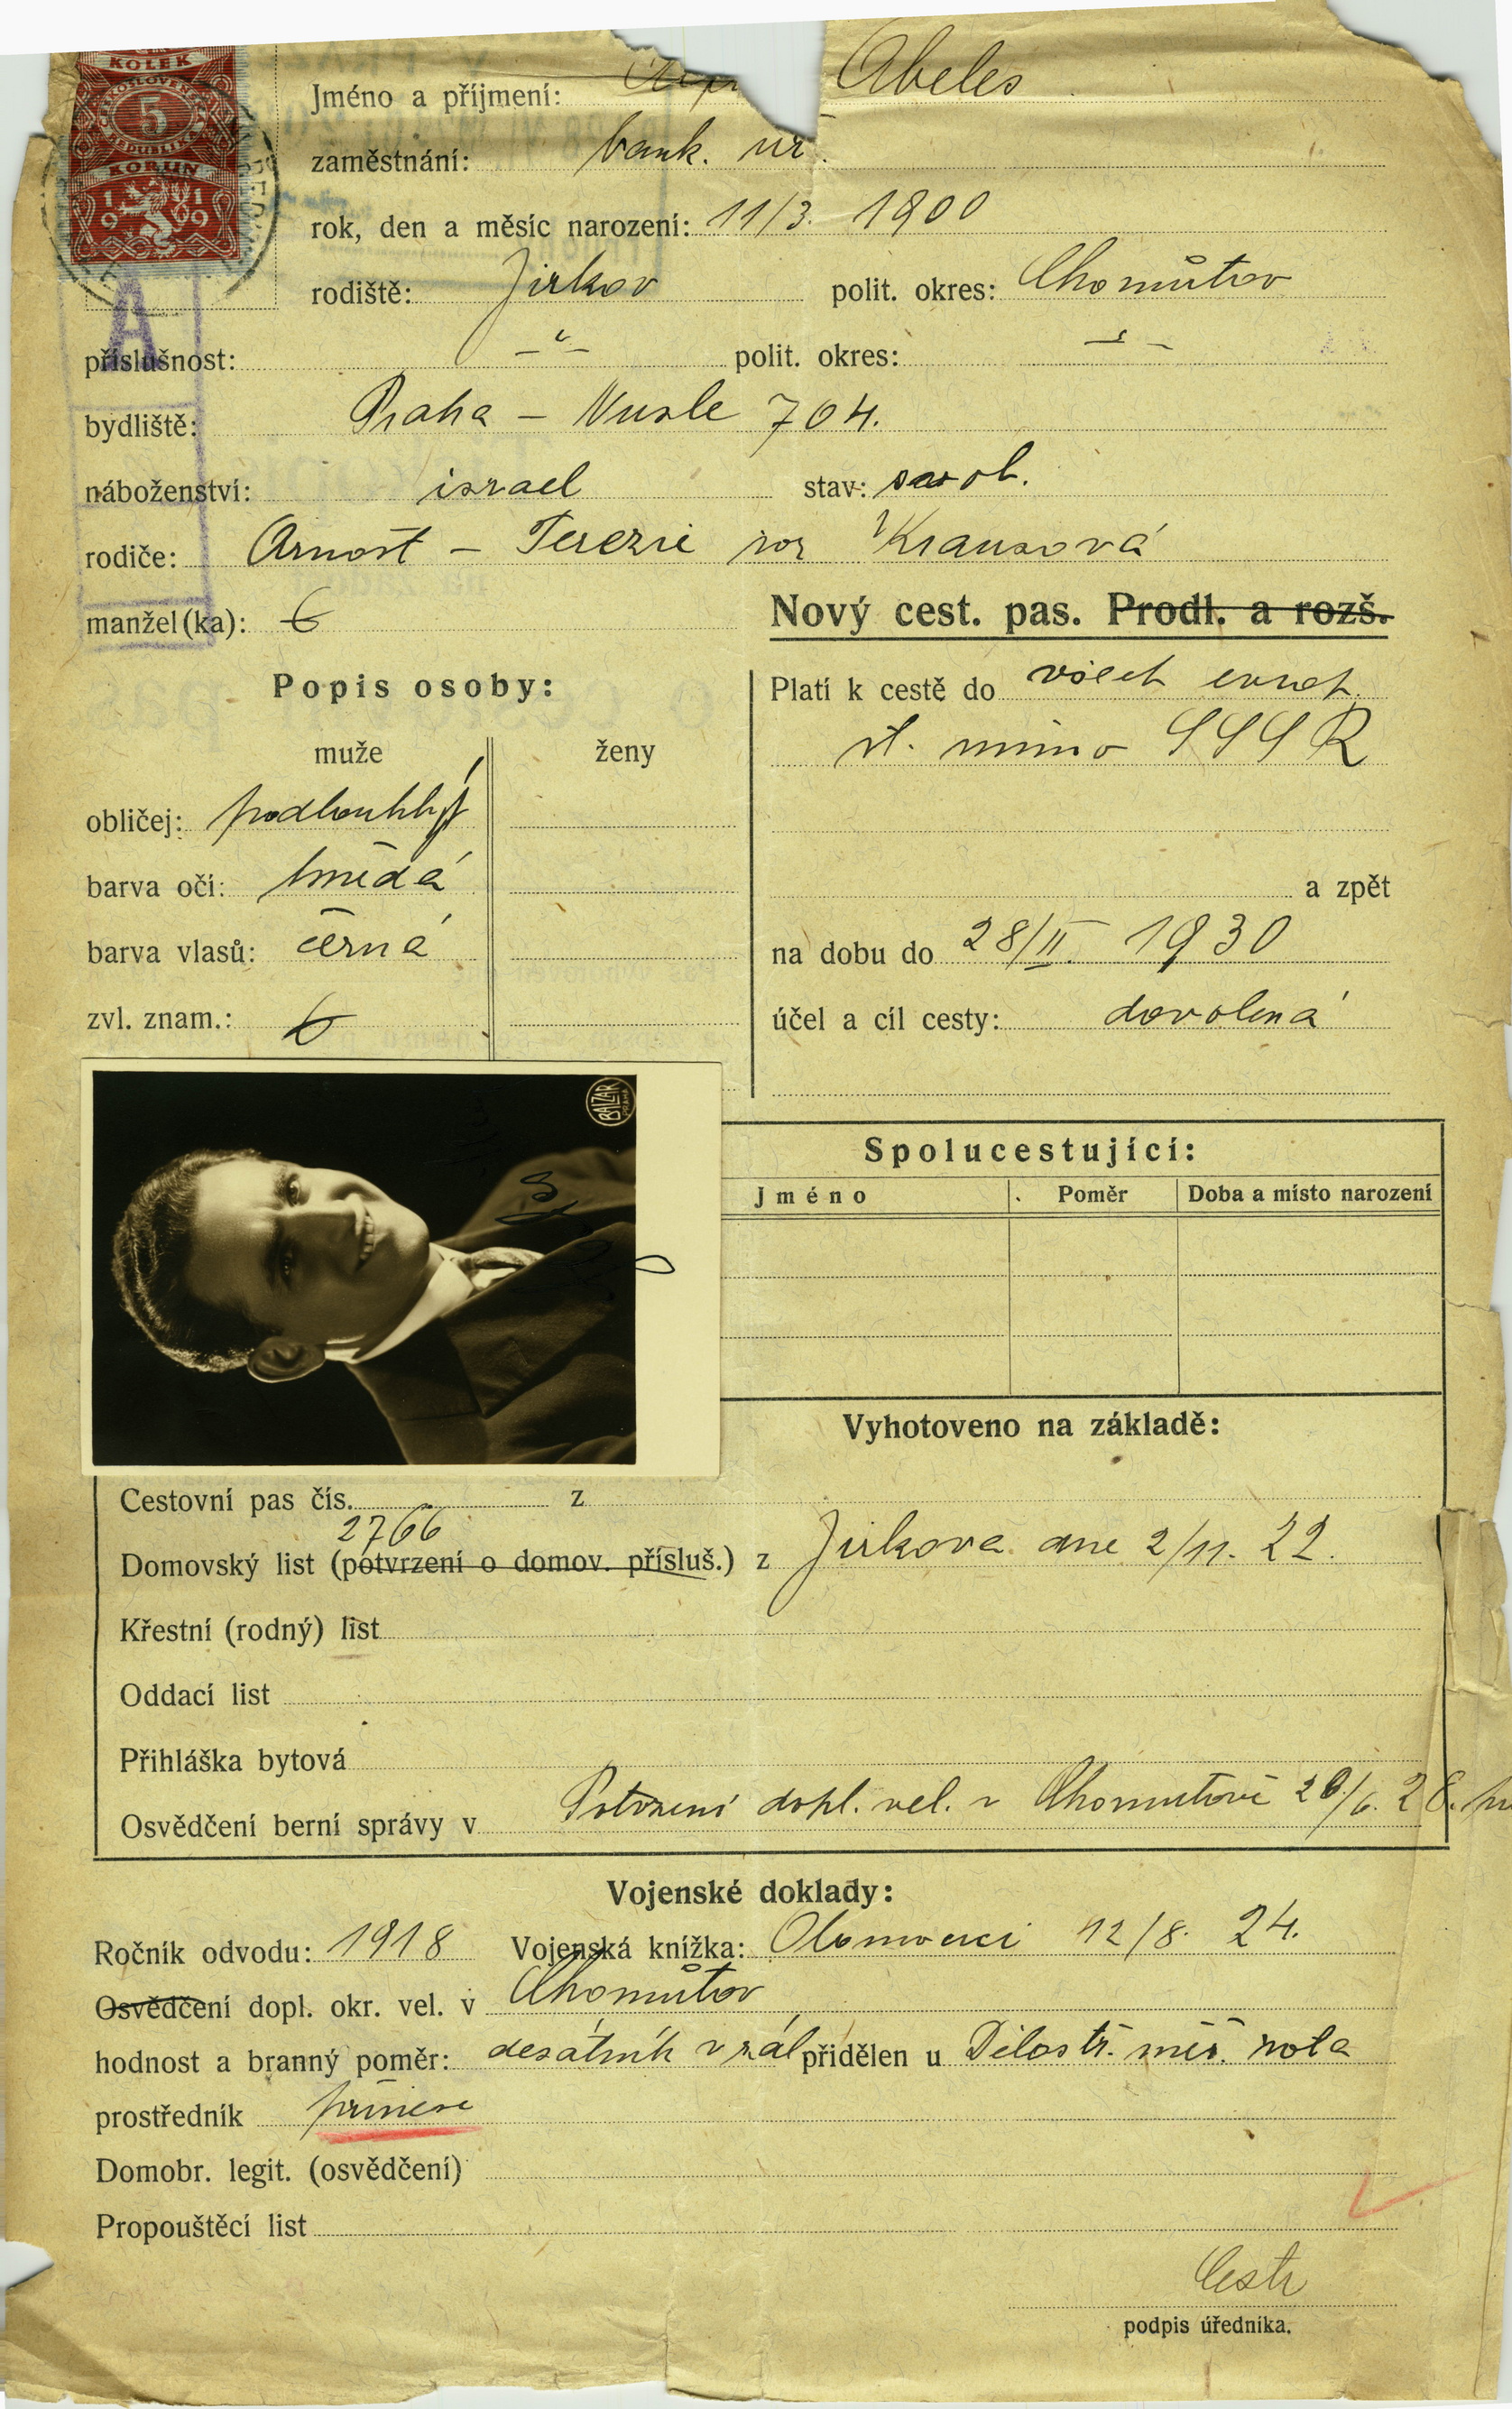 KOLEK
5
KORUN
1919
A
Jméno a příjmení: Abeles
zaměstnání: bank. úř.
rok, den a měsíc narození: 11/3. 1900
rodiště: Jirkov polit. okres: Chomůtov
příslušnost: —"— polit. okres: —"—
bydliště: Praha – Nusle 704.
náboženství: israel stav: svob.
rodiče: Arnošt – Terezie roz Krausová
manžel(ka):
Nový cest. pas. Prodl. a rozš.
Popis osoby:
muže ženy
obličej: podlouhlý
barva očí: hnědá
barva vlasů: černá
zvl. znam.:
Platí k cestě do všech evrop.
st. mimo SSSR
a zpět
na dobu do 28/II. 1930
účel a cíl cesty: dovolená
BALZAR
PRAHA
Spolucestující:
Jméno Poměr Doba a místo narození
Vyhotoveno na základě:
Cestovní pas čís. z
2766
Domovský list (potvrzení o domov. přísluš.) z Jirkova dne 2/11. 22.
Křestní (rodný) list
Oddací list
Přihláška bytová
Osvědčení berní správy v Potvrzení dopl. vel. v Chomutově 20/6. 28.
Vojenské doklady:
Ročník odvodu: 1918 Vojenská knížka: Olomouci 12/8. 24.
Osvědčení dopl. okr. vel. v Chomůtov
hodnost a branný poměr: desátník v zál přidělen u Dělostř. měř. rota
prostředník
Domobr. legit. (osvědčení)
Propouštěcí list
podpis úředníka.